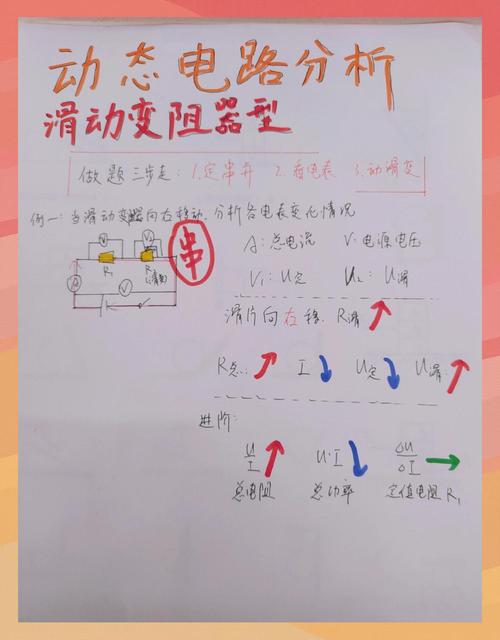 动态电路分析
滑动变阻器型
做题三步走: 1.定串并 2.看电表 3.动滑变
例一:当滑动变阻器向右移动,分析各电表变化情况
A:总电流 V:电源电压
V₁:U定 U₂:U滑
V₁ V₂
R₁ R₂
串
A V
滑片向右移, R滑
R总: I U定 U滑:
进阶:
U/I U·I ΔU/ΔI
总电阻 总功率 定值电阻R₁